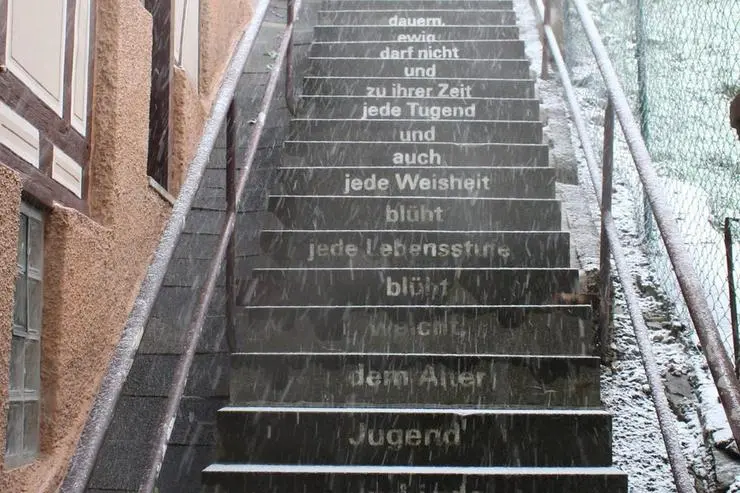 dauern.
ewig
darf nicht
und
zu ihrer Zeit
jede Tugend
und
auch
jede Weisheit
blüht
jede Lebensstufe
blüht
weicht,
dem Alter
Jugend